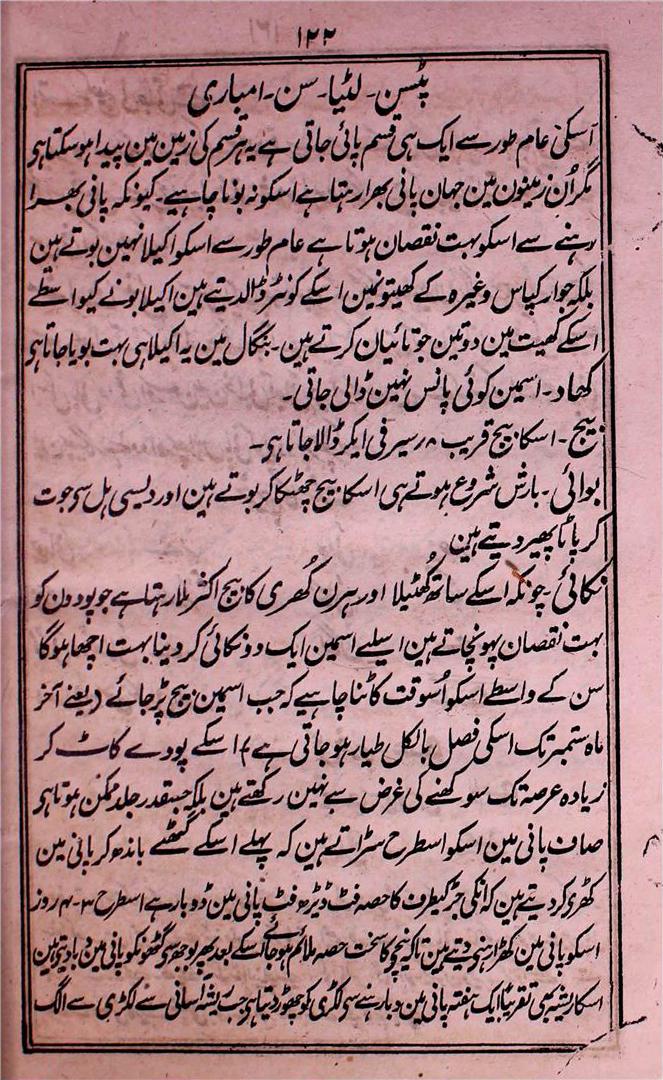 ۱۲۲
پٹسن۔ لٹیا۔ سن۔ امباری
اسکی عام طور سے ایک ہی قسم پائی جاتی ہے یہ ہر قسم کی زمین مین پیدا ہوسکتا ہی
مگر اُن زمینون مین جہان پانی بھرا رہتا ہے اسکو نہ بونا چاہیے۔ کیونکہ پانی بھرا
رہنے سے اسکو بہت نقصان ہوتا ہے عام طور سے اسکو اکیلا نہین بوتے ہین
بلکہ جوار کپاس وغیرہ کے کھیتونمین اسکے کونٹر ڈالدیتے ہین اکیلا بونے کیواسطے
اسکے کھیت مین دو تین جوتائیان کرتے ہین۔ بنگال مین یہ اکیلا ہی بہت بویا جاتا ہی
کھاد۔ اسمین کوئی پانس نہین ڈالی جاتی۔
بیج۔ اسکا بیج قریب ۸ سیر فی ایکر ڈالا جاتا ہی۔
بوائی۔ بارش شروع ہوتے ہی اسکا بیج چھٹکا کر بوتے ہین اور دیسی ہل سی جوت
کر پاٹا پھیر دیتے ہین
نکائی۔ چونکہ اسکے ساتھ گھٹیلا اور ہرن کُھری کا بیج اکثر ملا رہتا ہے جو پودون کو
بہت نقصان پہونچاتے ہین اسیلیے اسمین ایک دو نکائی کر دینا بہت اچھا ہوگا
سن کے واسطے اسکو اُسوقت کاٹنا چاہیے کہ جب اسمین بیج پڑ جائے (یعنے آخر
ماہ ستمبر تک اسکی فصل بالکل طیار ہو جاتی ہے) اسکے پودے کاٹ کر
زیادہ عرصہ تک سوکھنے کی غرض سے نہین رکھتے ہین بلکہ جسقدر جلد ممکن ہوتا ہی
صاف پانی مین اسکو اسطرح سڑاتے ہین کہ پہلے اسکے گٹھے باندھ کر پانی مین
کھڑی کر دیتے ہین کہ انکی جڑ کیطرف کا حصہ فٹ ڈیڑھ فٹ پانی مین ڈوبا رہے اسطرح ۳-۴ روز
اسکو پانی مین کھڑا رہنی دیتے ہین تاکہ نیچیکا سخت حصہ ملائم ہو جائے اسکے بعد پھر بوجھ سی گٹھونکو پانی مین دبا دیتی ہین
اسکا ریشہ بھی تقریباً ایک ہفتہ پانی مین دبا رہنے سی لکڑی کو چھوڑ دیتا ہی جب ریشہ آسانی سے لکڑی سے الگ